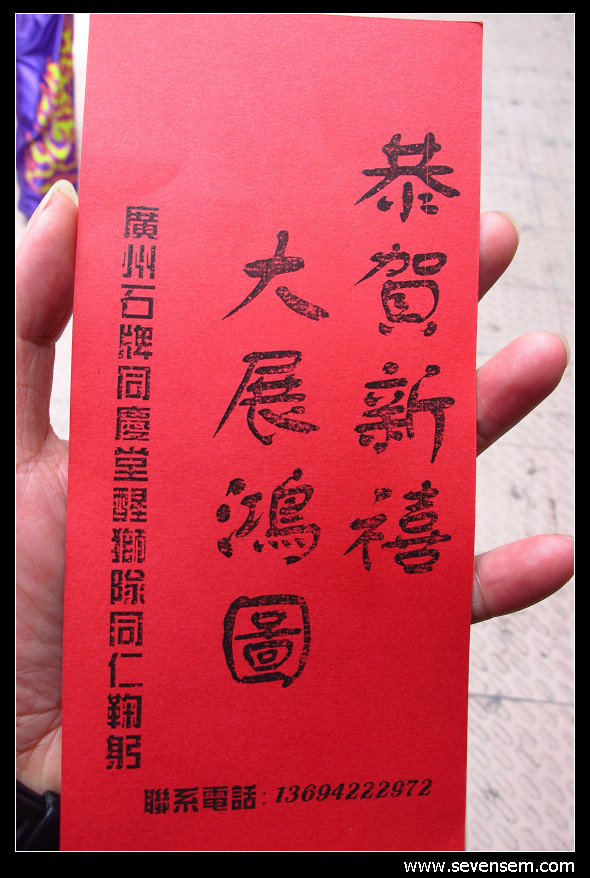 恭賀新禧
大展鴻圖
廣州石牌同慶堂醒獅除同仁鞠躬
聯系電話：13694222972
www.sevensem.com